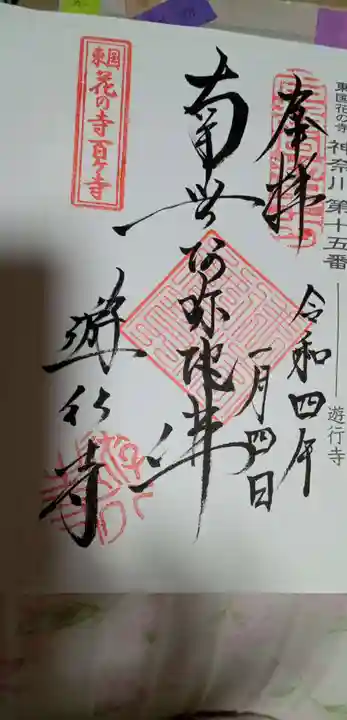 東国花の寺 神奈川 第十五番 遊行寺
奉拝
令和四年
一月四日
南無阿弥陀佛
遊行寺
東国
花の寺百ヶ寺